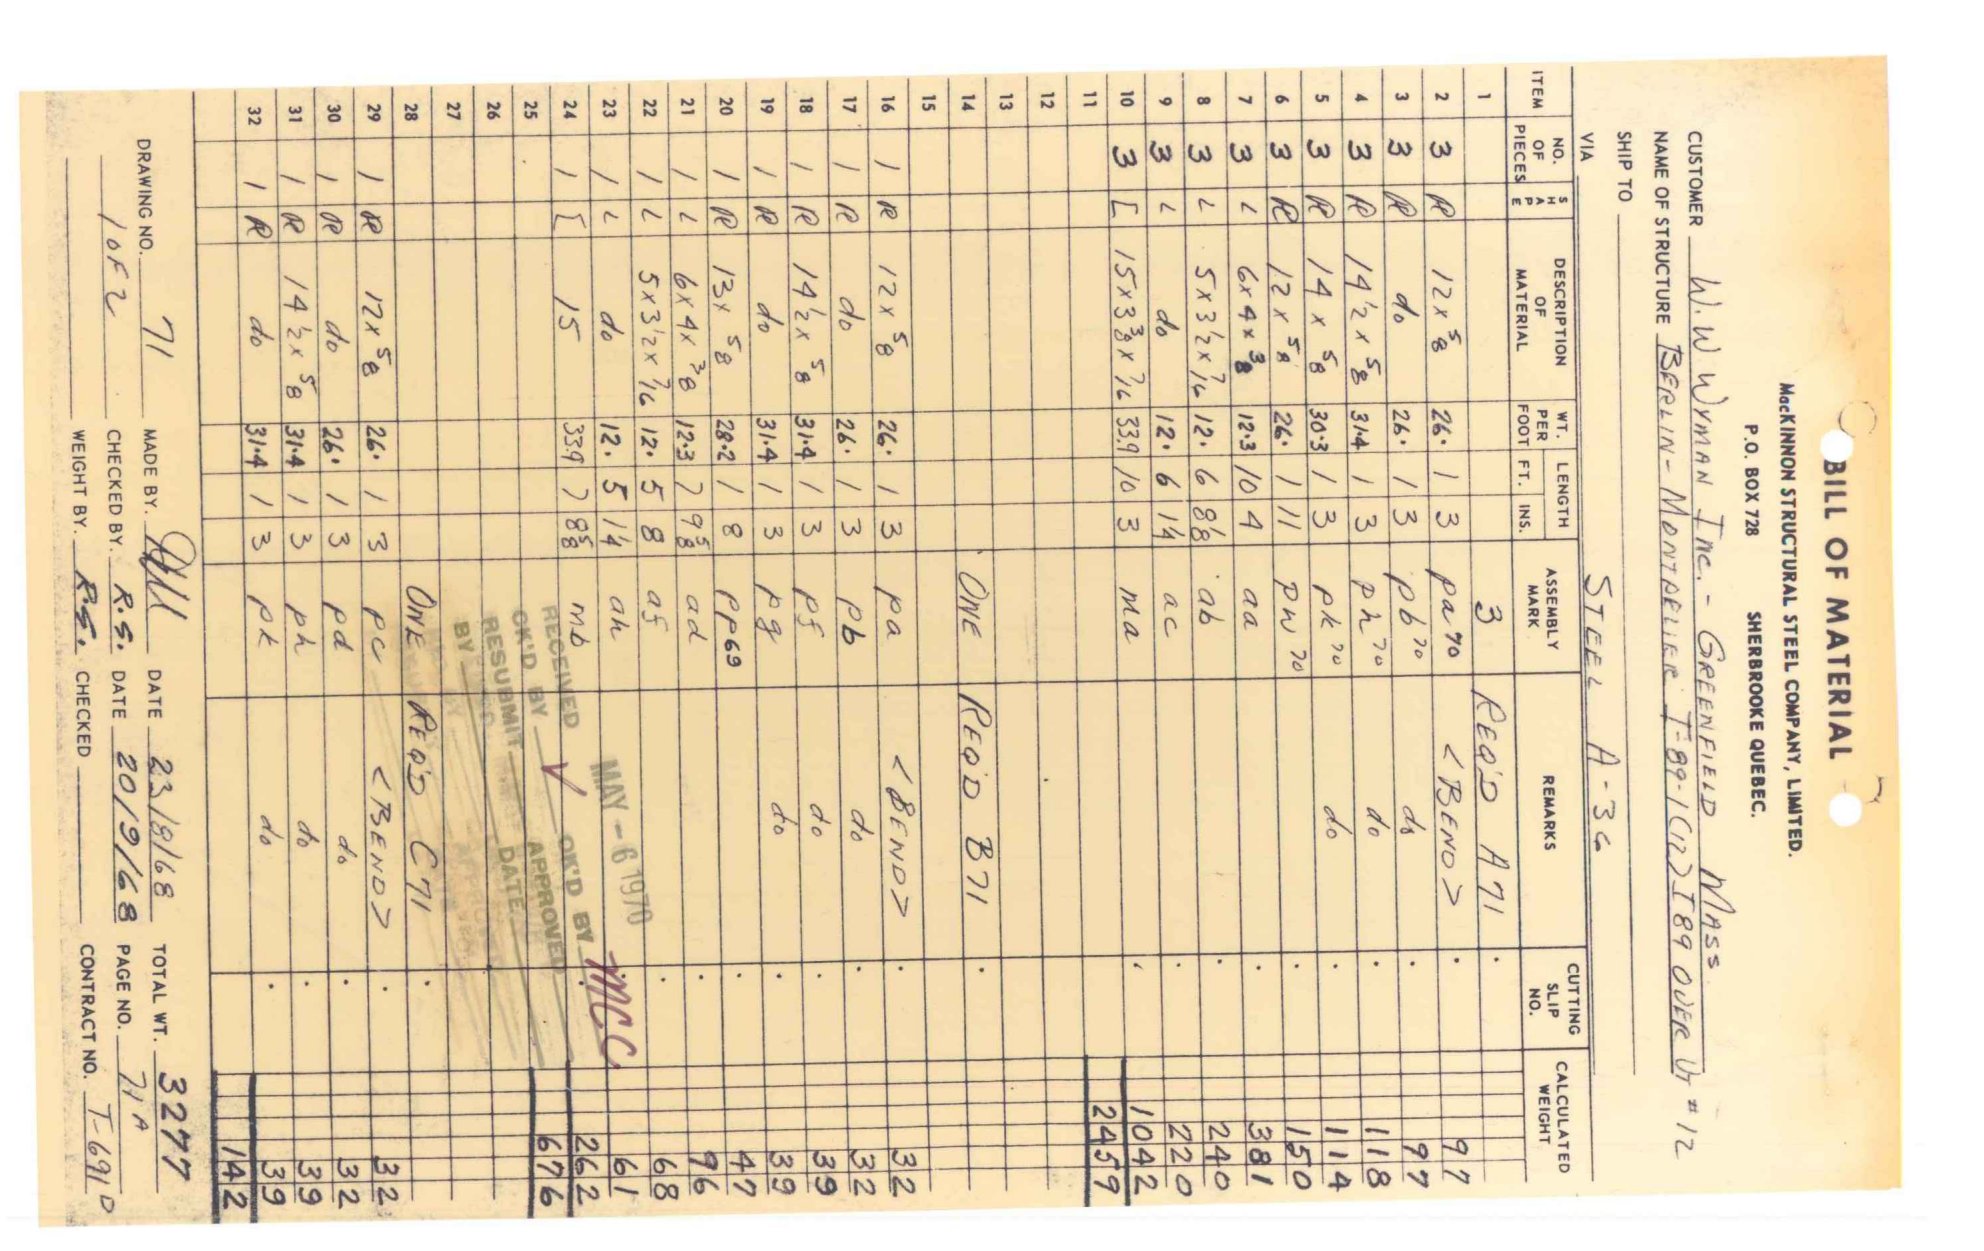 BILL OF MATERIAL
MacKINNON STRUCTURAL STEEL COMPANY, LIMITED.
P.O. BOX 728 SHERBROOKE QUEBEC.
CUSTOMER W. W WYMAN INC. - GREENFIELD MASS
NAME OF STRUCTURE BERLIN - MONTPELIER I-89-1(12) I 89 OVER Vt #12
SHIP TO
VIA STEEL A-36
ITEM NO. OF PIECES SHAPE DESCRIPTION OF MATERIAL WT. PER FOOT LENGTH FT. INS. ASSEMBLY MARK REMARKS CUTTING SLIP NO. CALCULATED WEIGHT
1 3 REQ'D A71
2 3 PL 12 x 5/8 26. 1 3 pa 70 <BEND> 97
3 3 PL do 26. 1 3 pb 70 do 97
4 3 PL 14 1/2 x 5/8 31.4 1 3 ph 70 do 118
5 3 PL 14 x 5/8 30.3 1 3 pk 70 do 114
6 3 PL 12 x 5/8 26. 1 11 70 150
7 3 L 6 x 4 x 3/8 12.3 10 4 aa 381
8 3 L 5 x 3 1/2 x 7/16 12. 6 8 1/8 ab 240
9 3 L do 12. 6 1 1/4 ac 220
10 3 [ 15 x 3 3/8 x 7/16 33.9 10 3 ma 1042
11 2459
12
13
14 ONE REQ'D B71
15
16 1 PL 12 x 5/8 26. 1 3 pa <BEND> 32
17 1 PL do 26. 1 3 pb do 32
18 1 PL 14 1/2 x 5/8 31.4 1 3 pf do 39
19 1 PL do 31.4 1 3 pg do 39
20 1 PL 13 x 5/8 28.2 1 8 pp69 47
21 1 L 6 x 4 x 3/8 12.3 7 9 5/8 ad 96
22 1 L 5 x 3 1/2 x 7/16 12. 5 8 af 68
23 1 L do 12. 5 1 1/4 ah 61
24 1 [ 15 33.9 7 8 5/8 mb 262
25 676
26
27
28 ONE REQ'D C71
29 1 PL 12 x 5/8 26. 1 3 pc <BEND> 32
30 1 PL do 26. 1 3 pd do 32
31 1 PL 14 1/2 x 5/8 31.4 1 3 ph do 39
32 1 PL do 31.4 1 3 pk do 39
142
MAY - 6 1970
RECEIVED OK'D BY MCC
OK'D BY APPROVED
RESUBMIT DATE
BY
DRAWING NO. 71 MADE BY. DATE 23/8/68 TOTAL WT. 3277
1 OF 2 CHECKED BY. R.S. DATE 20/9/68 PAGE NO. 71A
WEIGHT BY. R.S. CHECKED CONTRACT NO. T-691D